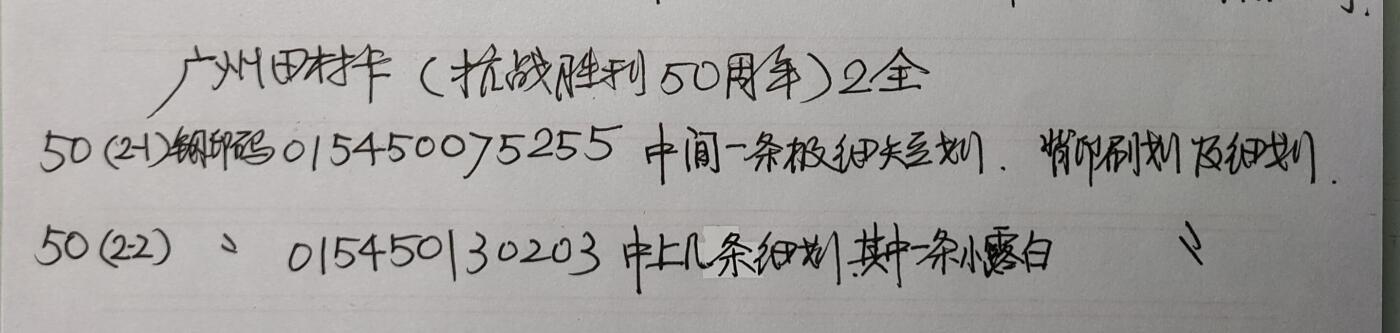 广州田村卡（抗战胜利50周年）2全
50（2-1）钢印码015450075255 中间一条极细短划．背印刷划及细划．
50（2-2） 〃 015450130203 中上几条细划.其中一条小露白 〃